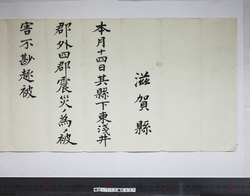 滋賀縣
本月十四日其縣下東淺井
郡外四郡震災ノ為メ被
害不尠趣被